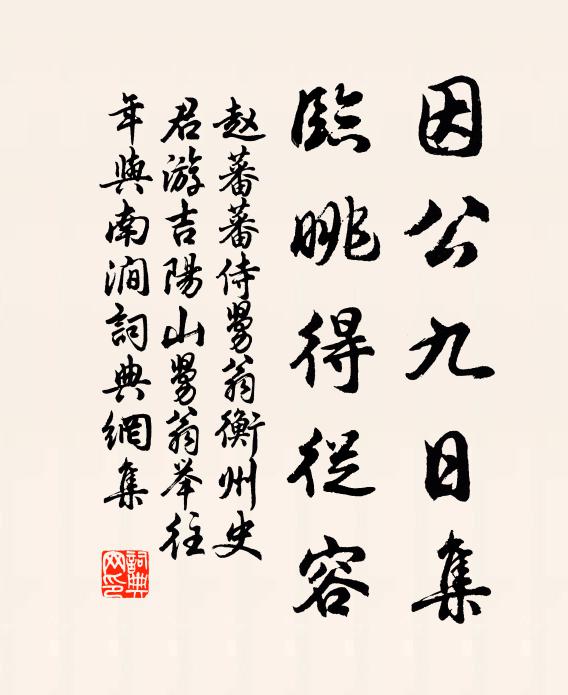 因公九日集
臨眺得從容
赵蕃蕃侍舅翁衡州史
君游吉陽山舅翁举往
年與南澗詞典網集
詞典網印